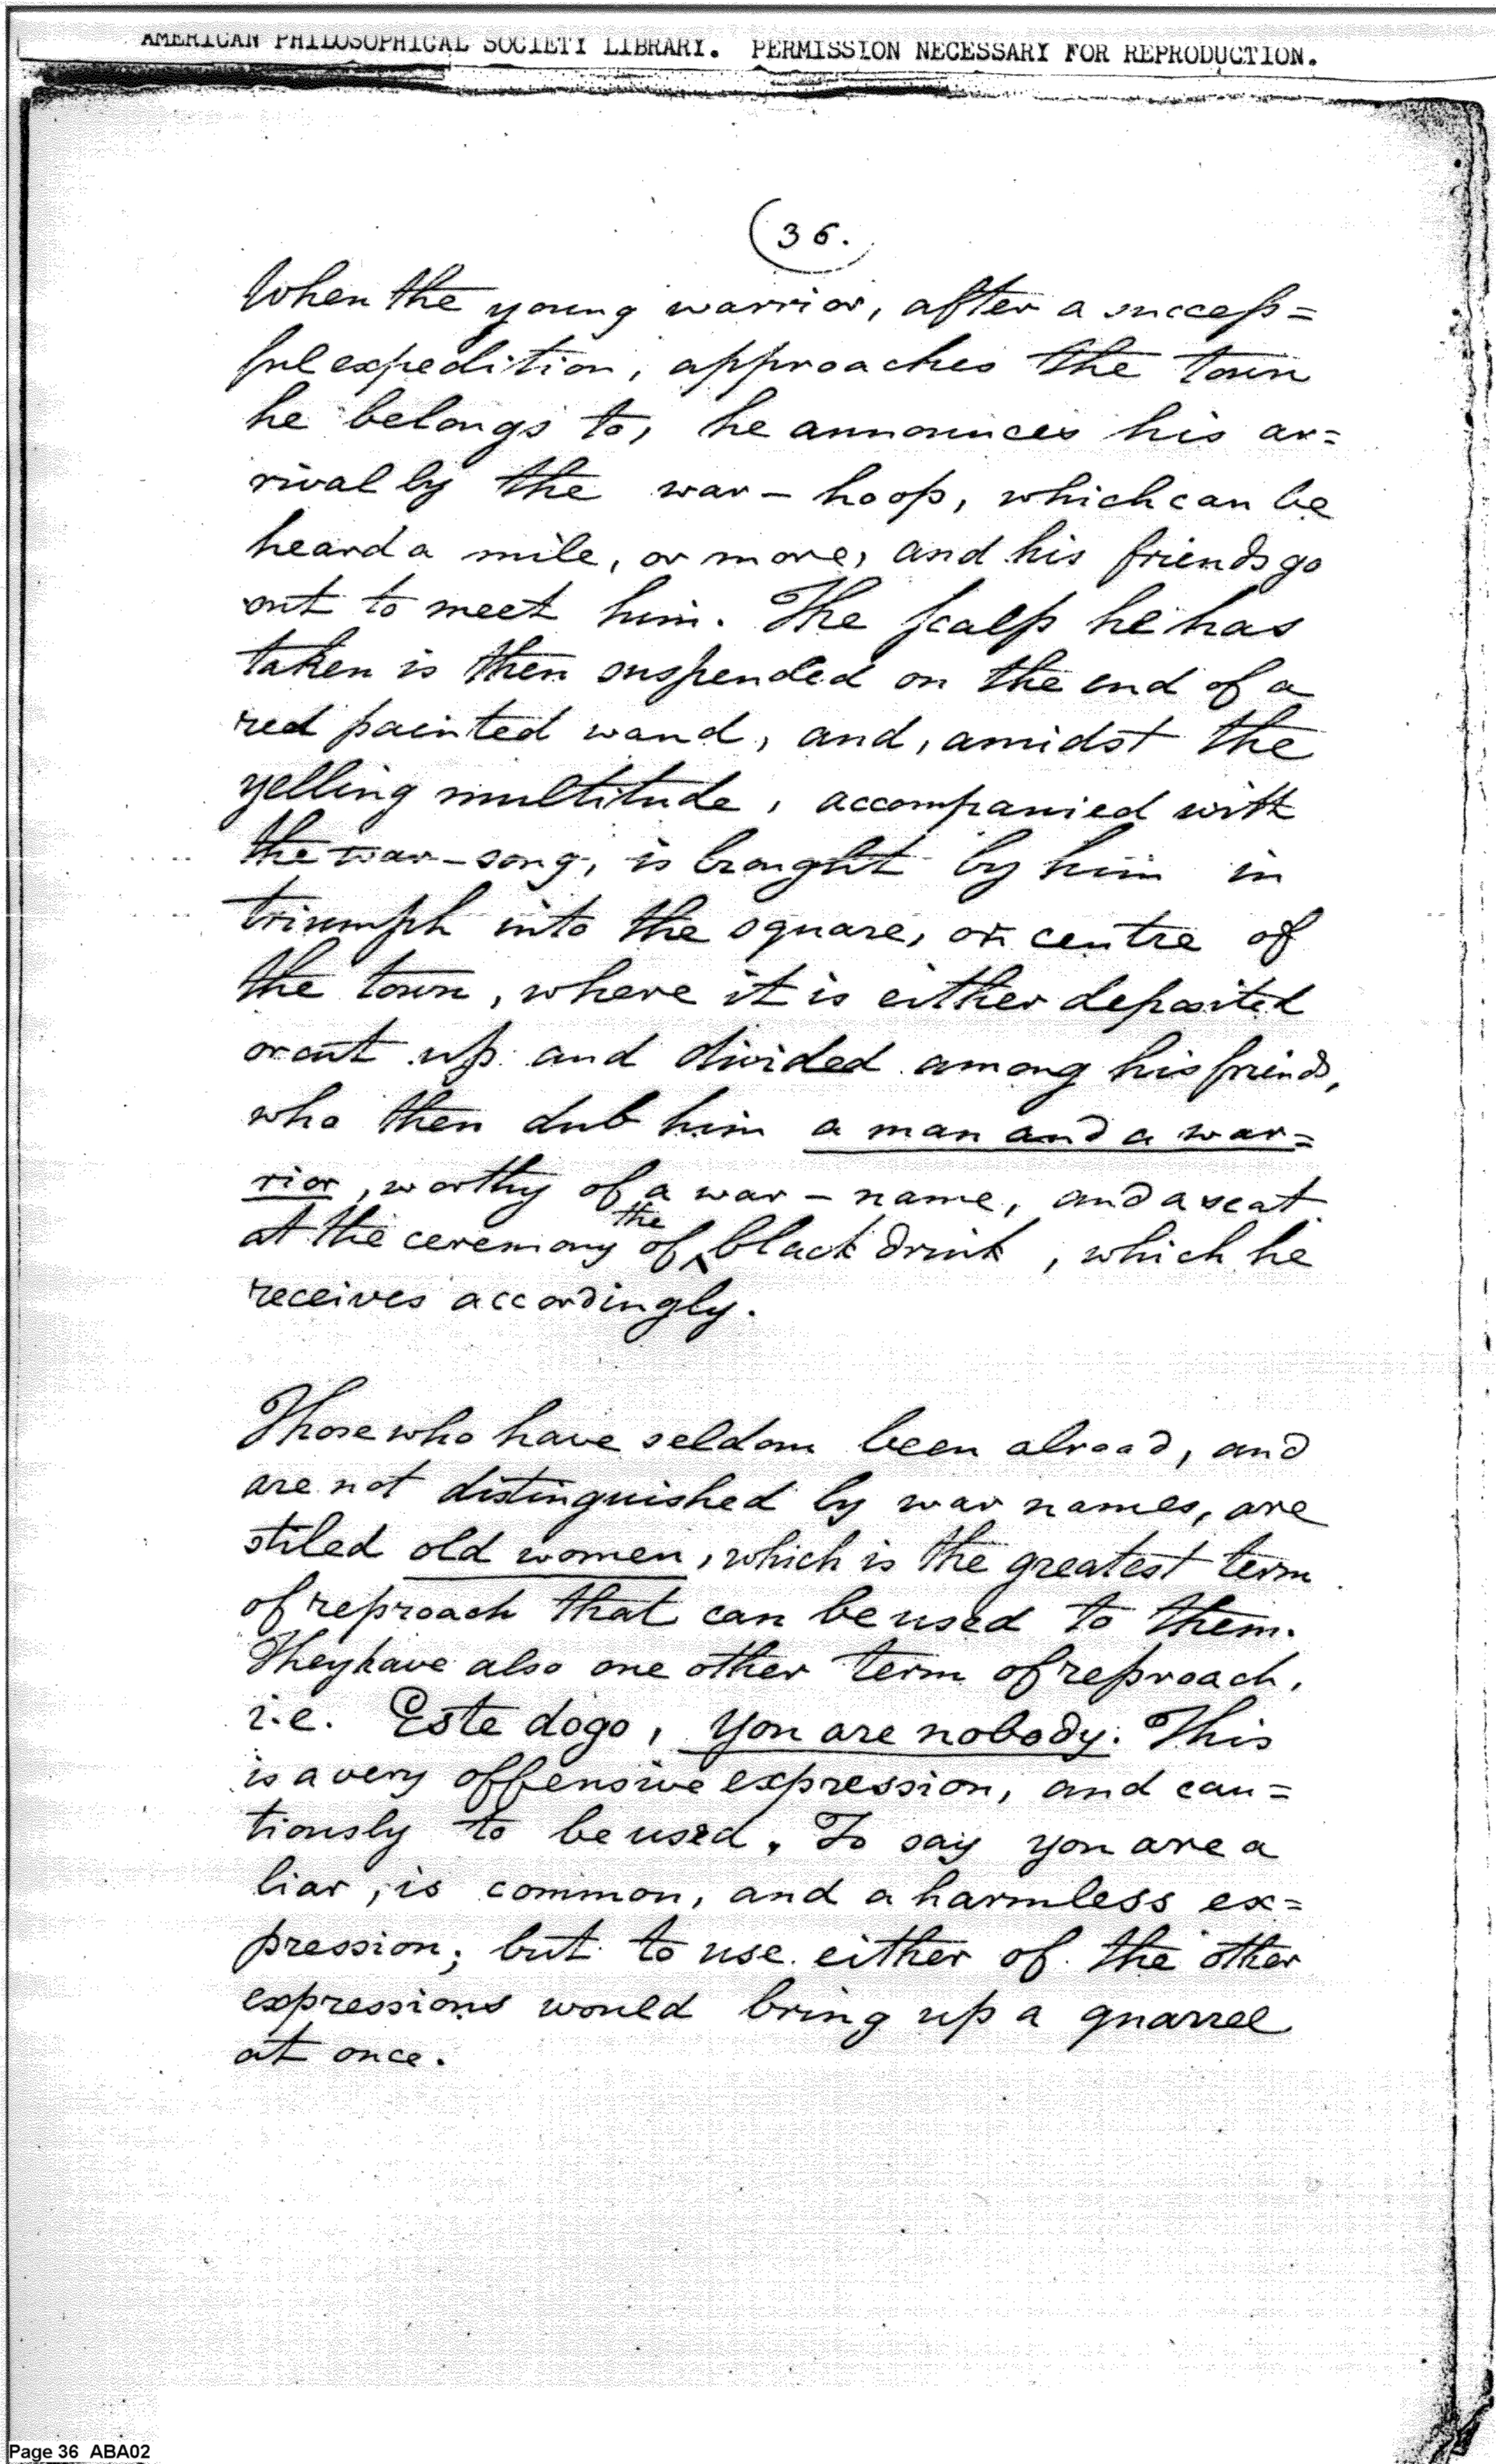 AMERICAN PHILOSOPHICAL SOCIETY LIBRARY. PERMISSION NECESSARY FOR REPRODUCTION.
(36.
When the young warrior, after a success=
ful expedition, approaches the town
he belongs to, he announces his ar=
rival by the war-hoop, which can be
heard a mile, or more, and his friends go
out to meet him. The scalp he has
taken is then suspended on the end of a
red painted wand, and, amidst the
yelling multitude, accompanied with
the war-song, is brought by him in
triumph into the square, or centre of
the town, where it is either deposited
or cut up and divided among his friends,
who then dub him a man and a war=
rior, worthy of a war-name, and a seat
at the ceremony of the black drink, which he
receives accordingly.
Those who have seldom been abroad, and
are not distinguished by war names, are
stiled old women, which is the greatest term
of reproach that can be used to them.
They have also one other term of reproach,
i.e. Este dogo, you are nobody. This
is a very offensive expression, and cau=
tiously to be used. To say you are a
liar, is common, and a harmless ex=
pression; but to use either of the other
expressions would bring up a quarrel
at once.
Page 36 ABA02